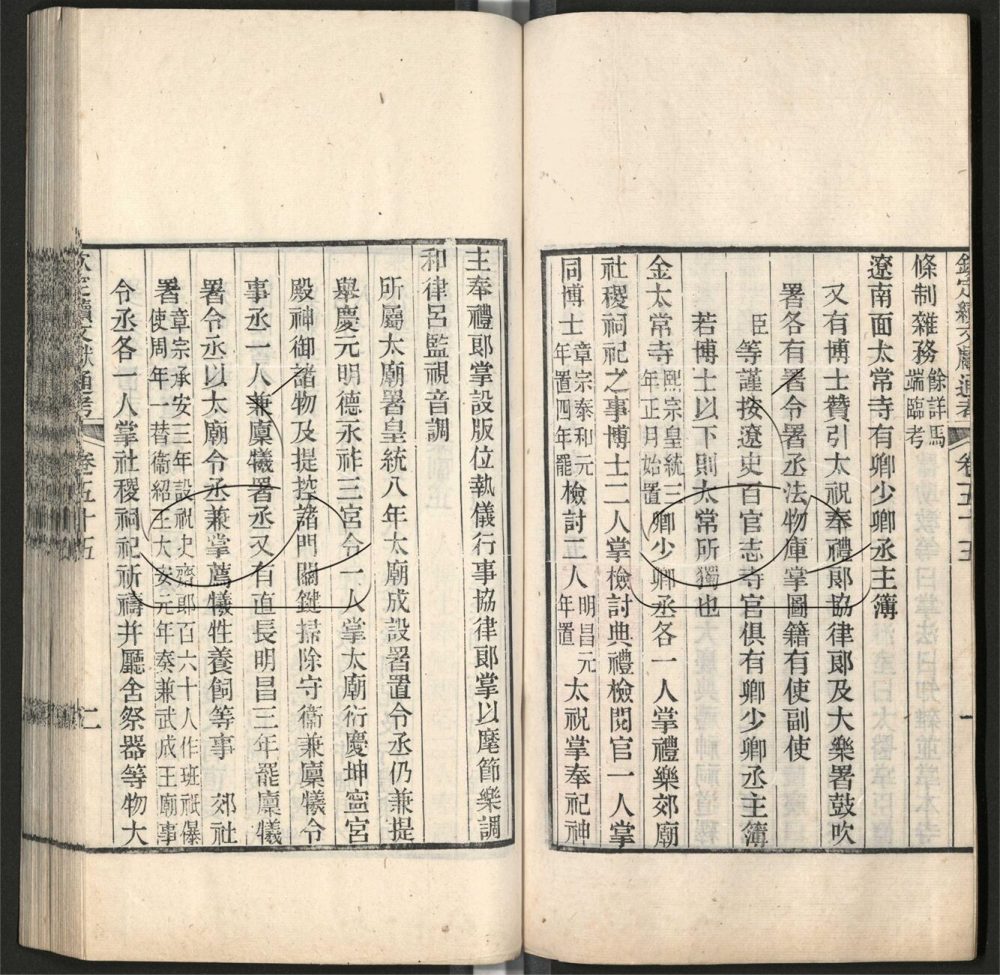 欽定續文獻通考 卷五十五
條制雜務餘詳馬端臨考
遼南面太常寺有卿少卿丞主簿
又有博士贊引太祝奉禮郎協律郎及大樂署鼓吹
署各有署令署丞法物庫掌圖籍有使副使
臣等謹按遼史百官志寺官俱有卿少卿丞主簿
若博士以下則太常所獨也
金太常寺熙宗皇統三年正月始置卿少卿丞各一人掌禮樂郊廟
社稷祠祀之事博士二人掌檢討典禮檢閱官一人掌
同博士章宗泰和元年置四年罷檢討二人明昌元年置太祝掌奉祀神
主奉禮郎掌設版位執儀行事協律郎掌以麾節樂調
和律呂監視音調
所屬太廟署皇統八年太廟成設署置令丞仍兼提
舉慶元明德永祚三宮令一人掌太廟衍慶坤寧宮
殿神御諸物及提控諸門關鍵掃除守衞兼廩犧令
事丞一人兼廩犧署丞又有直長明昌三年罷廩犧
署令丞以太廟令丞兼掌薦犧牲養飼等事 郊社
署章宗承安三年設祝史齋郎百六十人作班祗𠊓使周年一替衞紹王大安元年奏兼武成王廟事
令丞各一人掌社稷祠祀祈禱并廳舍祭器等物大
欽定續文獻通考 卷五十五 二